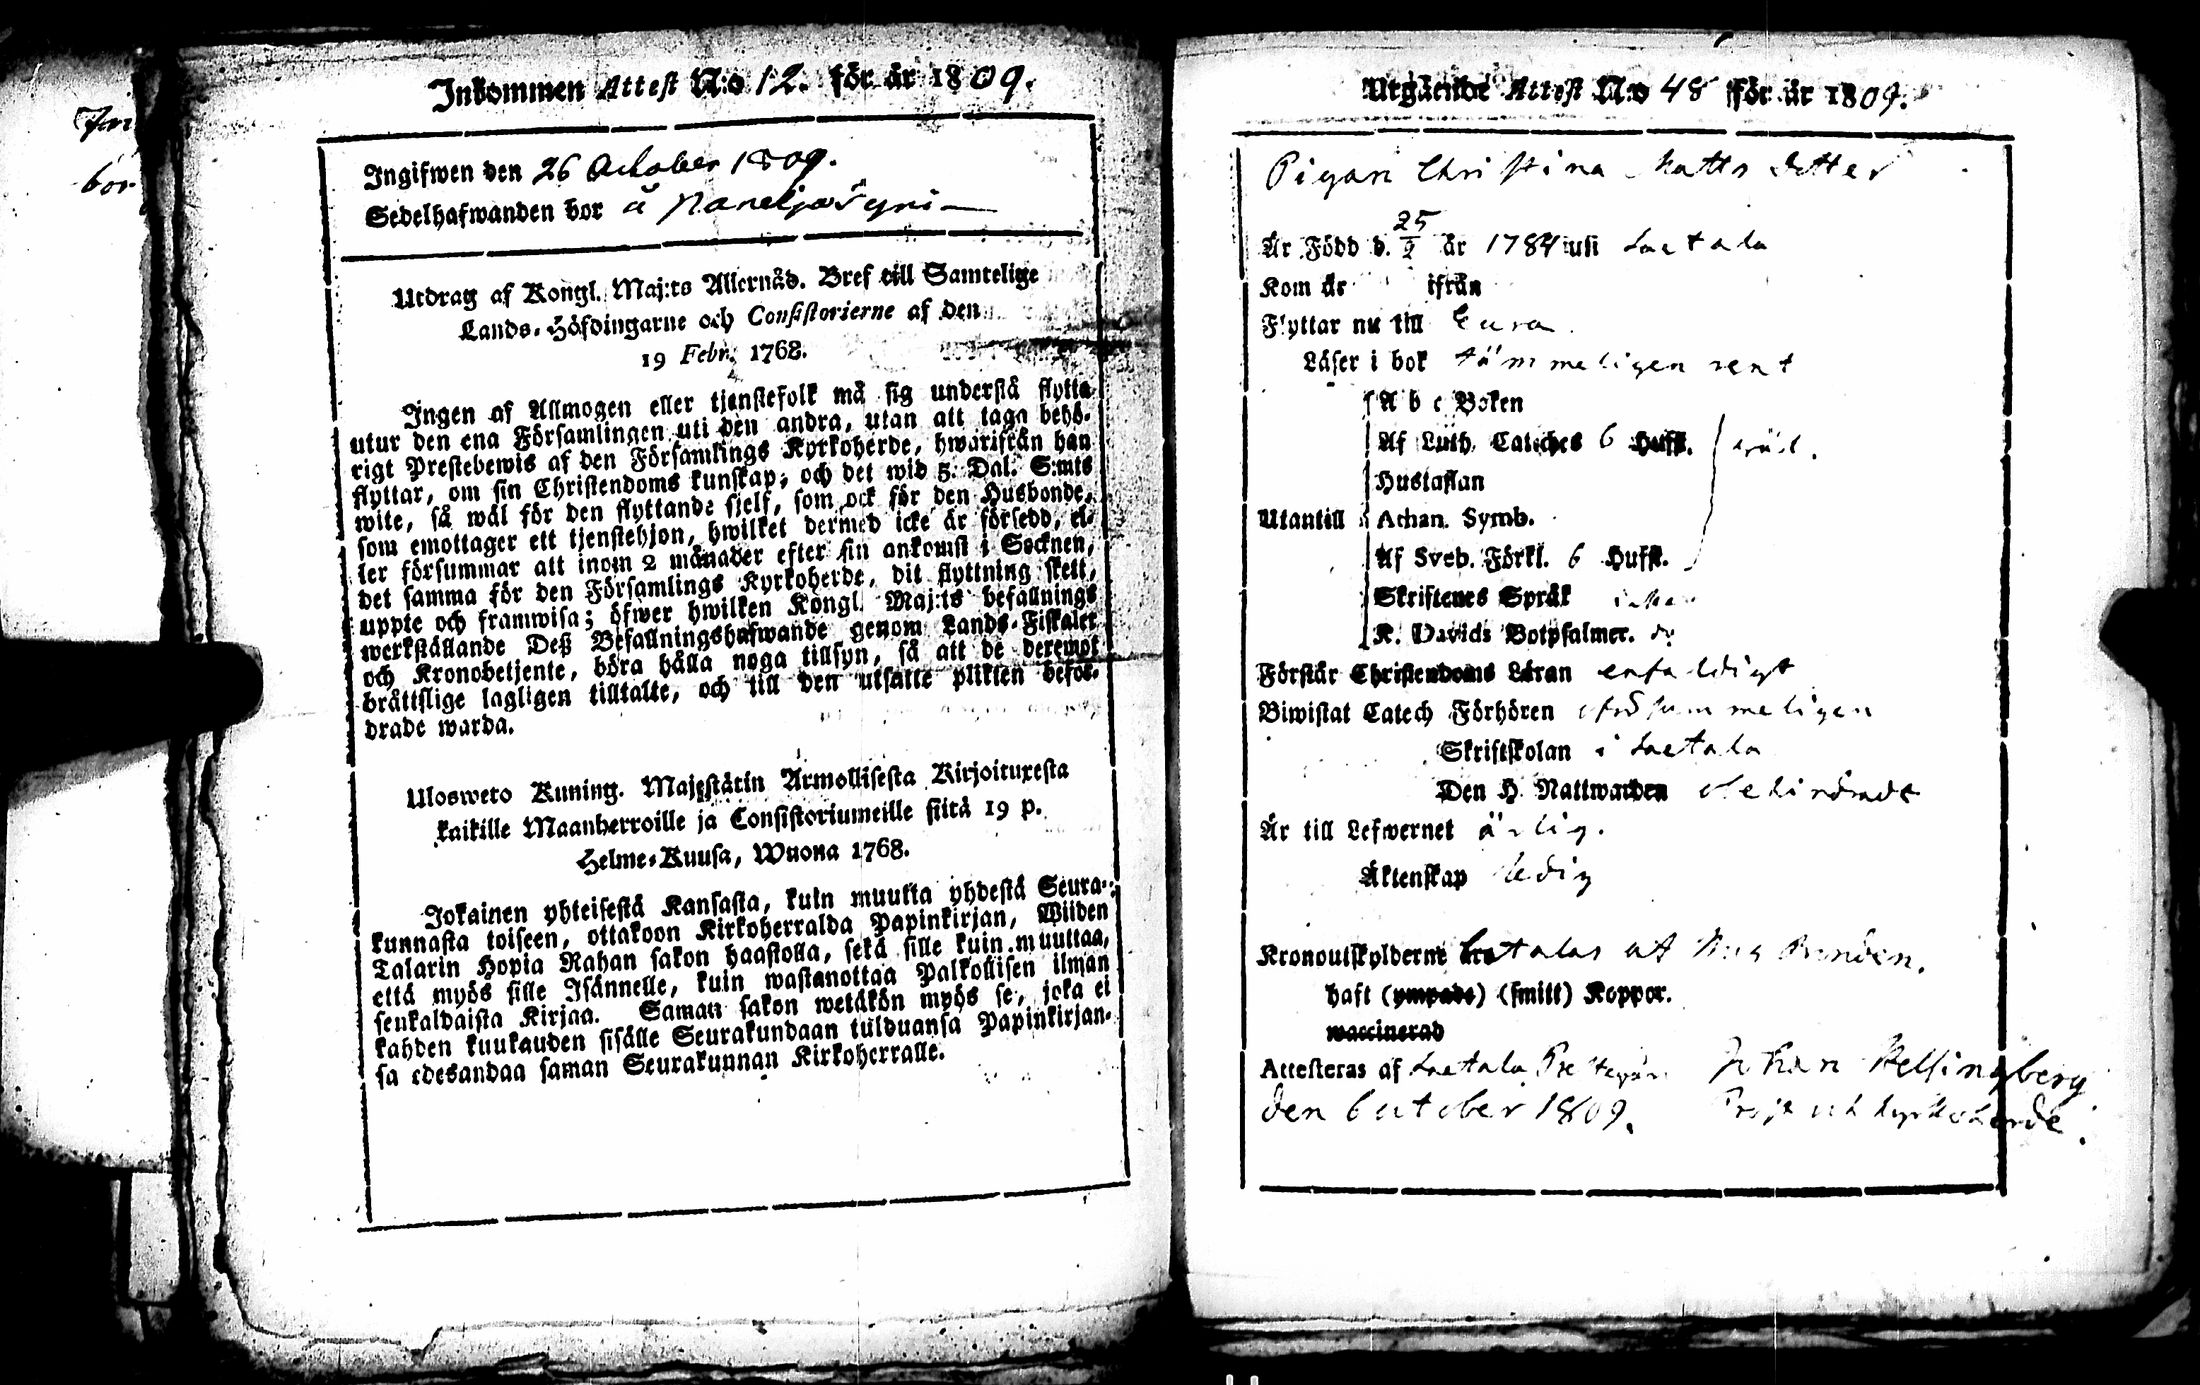 Jnkommen Attest N:o 12. för år 1809.
Ingifwen den 26 October 1809.
Sedelhafwanden bor å
Utdrag af Kongl. Maj:ts Allernåd. Bref till Samtelige
Lands-Höfdingarne och Consistorierne af den
19 Febr. 1768.
Ingen af Allmogen eller tjenstefolk må sig understå flytta
utur den ena Församlingen uti den andra, utan att taga behö-
rigt Prestebewis af den Församlings Kyrkoherde, hwarifrån han
flyttar, om sin Christendoms kunskap; och det wid 5. Dal. S:mts
wite, så wäl för den flyttande sjelf, som ock för den Husbonde,
som emottager ett tjenstehjon, hwilket dermed icke är försedd, el-
ler försummar att inom 2 månader efter sin ankomst i Socknen,
det samma för den Församlings Kyrkoherde, dit flyttning skett,
uppte och framwisa; öfwer hwilken Kongl. Maj:ts befallnings
werkställande Deß Befallningshafwande genom Lands-Fiskaler
och Kronobetjente, böra hålla noga tillsyn, så att de deremot
brättslige lagligen tilltalte, och till den utsatte plikten befor-
drade warda.
Ulosweto Kuning. Majestätin Armollisesta Kirjoituxesta
kaikille Maanherroille ja Consistoriumeille siitä 19 p.
Helme-Kuusa, Wuona 1768.
Jokainen yhteisestä Kansasta, kuin muutta yhdestä Seura-
kunnasta toiseen, ottakoon Kirkoherralda Papinkirjan, Wiiden
Talarin Hopia Rahan sakon haastolla, sekä sille kuin muuttaa,
että myös sille Isännelle, kuin wastanottaa Palkollisen ilman
senkaldaista Kirjaa. Saman sakon wetäkön myös se, joka ei
kahden kuukauden sisälle Seurakundaan tulduansa Papinkirjan-
sa edesandaa saman Seurakunnan Kirkoherralle.
Utgående Attest N:o 48 för år 1809.
Pigan Christina Matts dotter
Är Född d. 25/9 år 1784 uti Laetala
Kom år ifrån
Flyttar nu till Eura
Läser i bok tämmeligen rent
A b c Boken
Af Luth. Cateches 6 Hufst.
Hustaflan
Utantill Athan. Symb.
Af Sveb. Förkl. 6 Hufst.
Skriftenes Språk
K. Davids Botpsalmer. do
Förstår Christendoms Läran enfaldigt
Biwistat Catech Förhören oförsummeligen
Skriftskolan i Laetala
Den H. Nattwarden obehindradt
Är till Lefwernet ärlig.
Äktenskap ledig
Kronoutskylderne betalas af Husbonden.
haft (ympade) (smitt) Koppor.
waccinerad
Attesteras af Laetala Prestegård Johan Helsingberg
den 6 october 1809. Prost och Kyrkoherde.